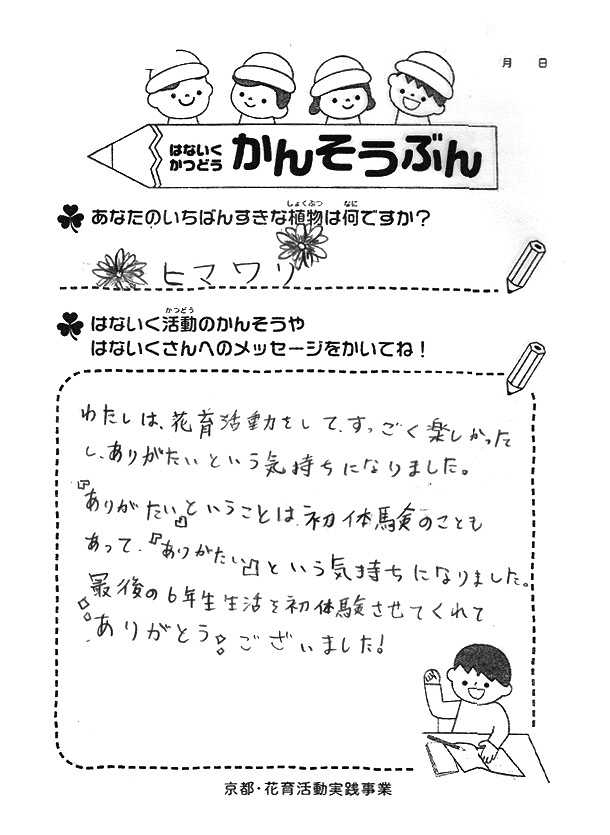 月 日
はないく
かつどう
かんそうぶん
あなたのいちばんすきな植物は何ですか？
しょくぶつ なに
ヒマワリ
かつどう
はないく活動のかんそうや
はないくさんへのメッセージをかいてね！
わたしは、花育活動をして、すっごく楽しかった
し、ありがたいという気持ちになりました。
『ありがたい』ということは、初体験のことも
あって、『ありがたい』という気持ちになりました。
最後の6年生生活を初体験させてくれて
ありがとうございました!
京都・花育活動実践事業